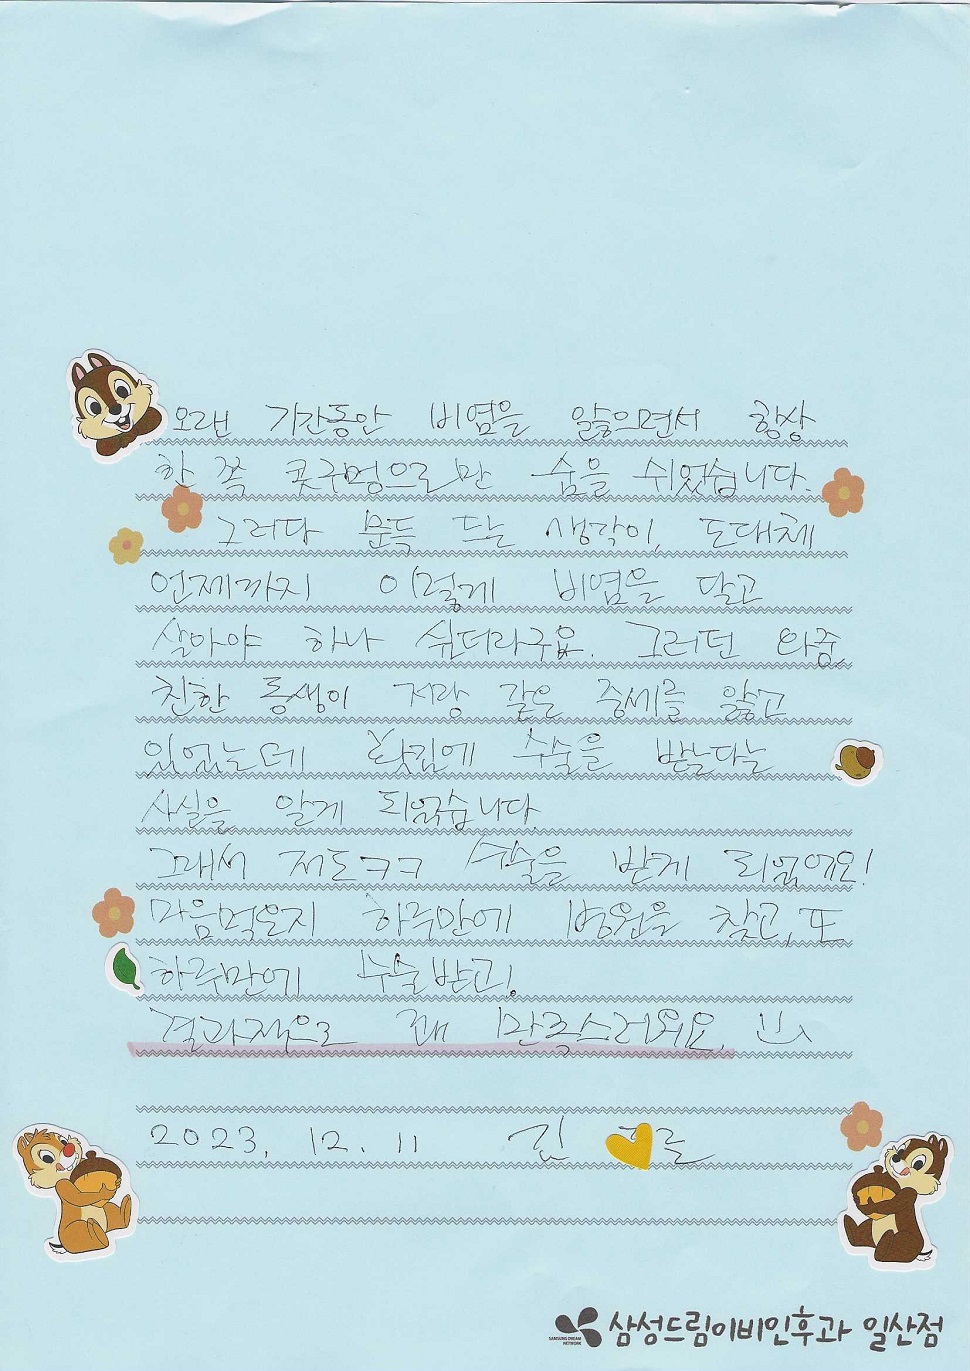 오랜 기간동안 비염을 앓으면서 항상
한 쪽 콧구멍으로만 숨을 쉬었습니다.
그러다 문득 드는 생각이, 도대체
언제까지 이렇게 비염을 달고
살아야 하나 싶더라구요. 그러던 와중,
친한 동생이 저랑 같은 증세를 앓고
있었는데 수술을 받는다는
사실을 알게 되었습니다.
그래서 저도ㅋㅋ 수술을 받게 되었어요!
마음먹은지 하루만에 병원을 찾고, 또
하루만에 수술받고!
결과적으로 꽤 만족스러워요.
2023. 12. 11 김
SAMSUNG DREAM NETWORK
삼성드림이비인후과 일산점